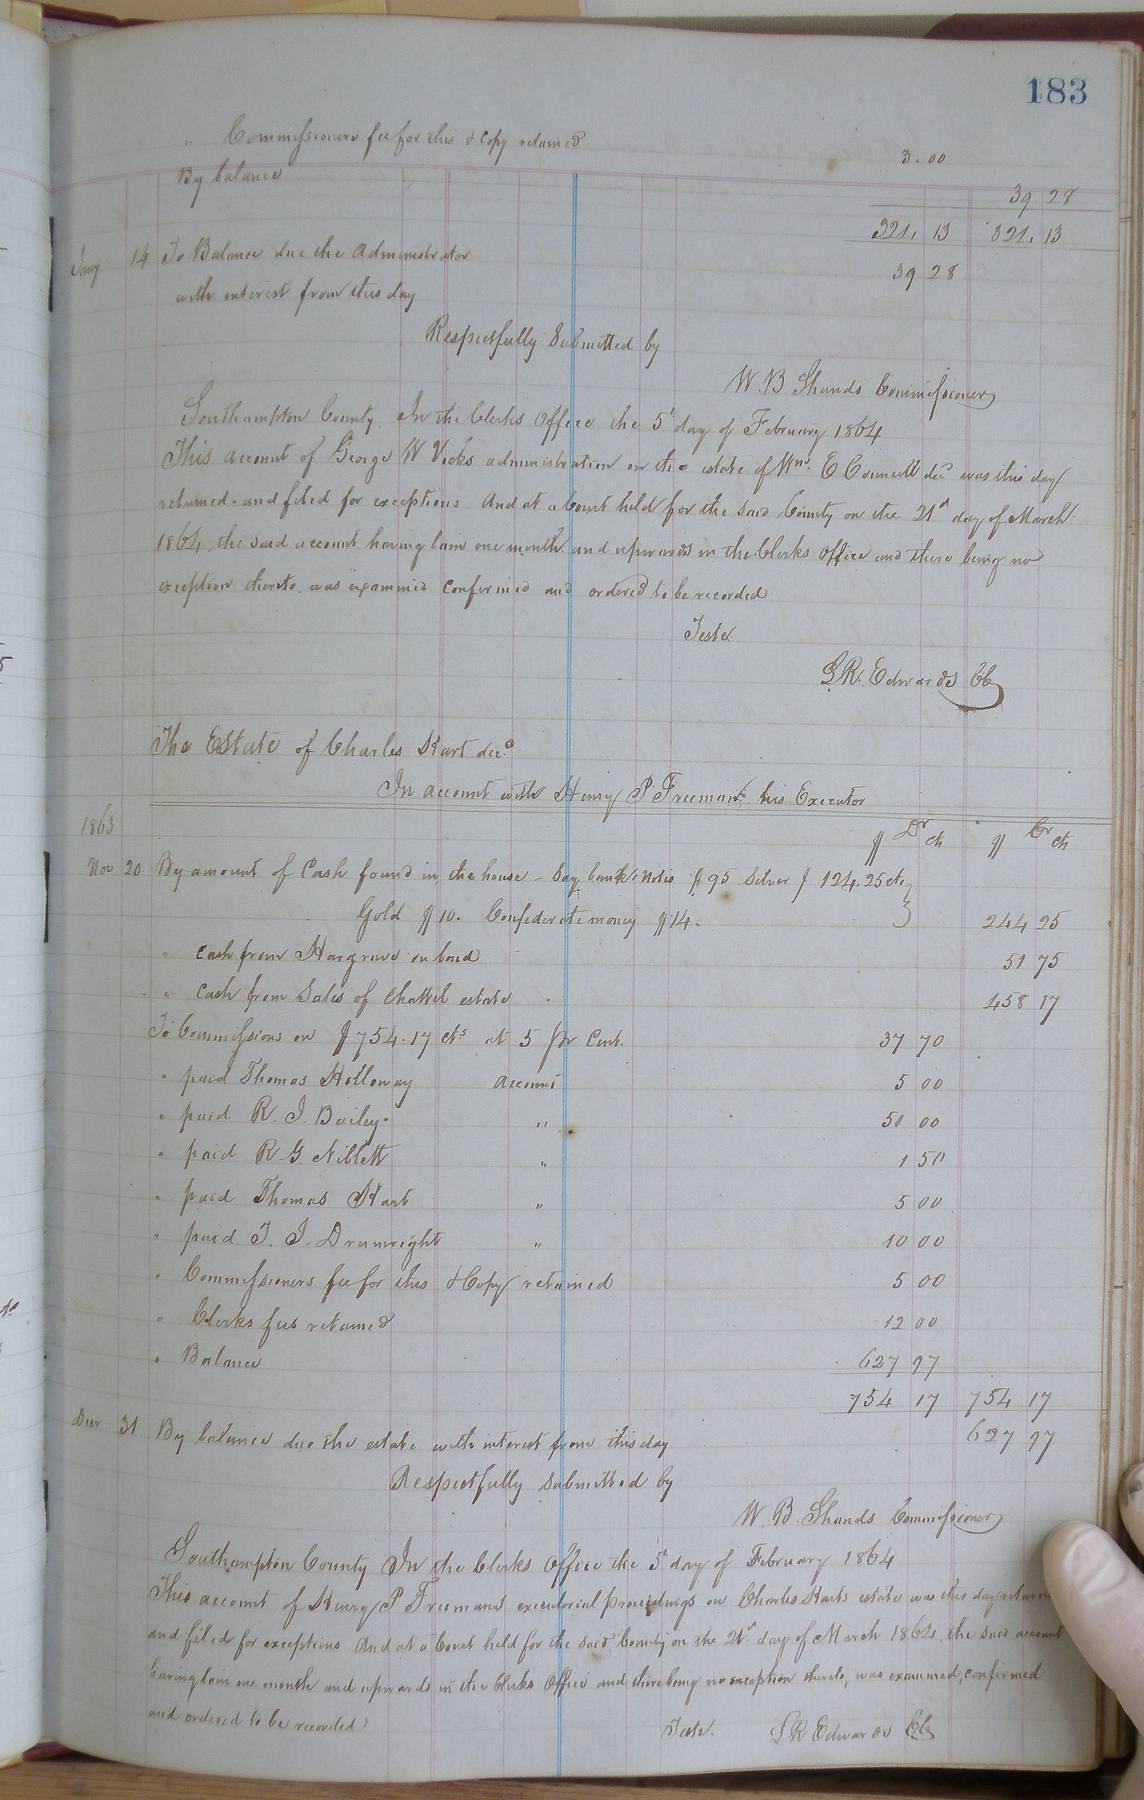 183
" Commissioners fee for this & copy retained 3.00
By balance 39 28
321. 13 321. 13
Jany 14 To Balance due the Administrator 39 28
with interest from this day
Respectfully Submitted by
W. B Shands Commissioner
Southampton County In the Clerks Office the 5th day of February 1864
This account of George W Vicks administration on the estate of Wm. E Councill decd was this day
returned and filed for exceptions And at a Court held for the said County on the 21st day of March
1864, the said account having lain one month and upwards in the Clerks Office and there being no
exception thereto was examined confirmed and ordered to be recorded
Teste
L R. Edwards CC
The Estate of Charles Hart decd
In account with Henry P Freeman his Executor
1863 $ Dr ct $ Cr ct
Nov 20 By amount of Cash found in the house - Say bank Notes $95 Silver $ 124.25 cts
Gold $10. Confederate money $14. 244 25
" cash from Hargrave on bond 51 75
" cash from Sales of Chattel estate 458 17
To Commissions on $754.17 cts at 5 pr Cent. 37 70
" paid Thomas Holloway account 5 00
" paid R. J. Bailey " 50 00
" paid R. G. Niblett " 1 50
" paid Thomas Hart " 5 00
" paid T. J. Drumright " 10 00
" Commissioners fee for this & Copy retained 5 00
" Clerks fees retained 12 00
" Balance 627 97
754 17 754 17
Decr 31 By balance due the estate with interest from this day 627 97
Respectfully submitted by
W. B. Shands Commissioner
Southampton County In the Clerks Office the 5th day of February 1864
This account of Henry P Freemans executorial proceedings on Charles Harts estate was this day
and filed for exceptions And at a Court held for the said County on the 21st day of March 1864, the said account
having lain one month and upwards in the Clerks Office and there being no exception thereto, was examined, confirmed
and ordered to be recorded
Teste. L R Edwards CC